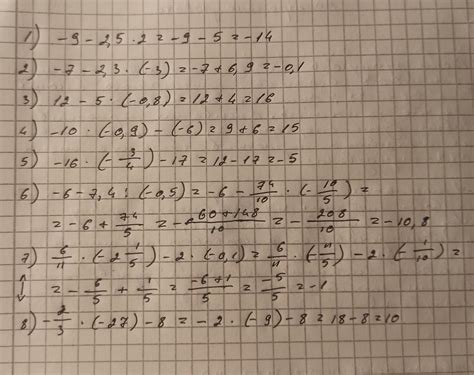 1) -9-2,5·2=-9-5=-14
2) -7-2,3·(-3)=-7+6,9=-0,1
3) 12-5·(-0,8)=12+4=16
4) -10·(-0,9)-(-6)=9+6=15
5) -16·(-3/4)-17=12-17=-5
6) -6-7,4:(-0,5)=-6-74/10·(-10/5)=
=-6+74/5=-60+148/10=-208/10=-10,8
7) 6/11·(-2 1/5)-2·(-0,1)=6/11·(-11/5)-2·(-1/10)=
=-6/5+1/5=-6+1/5=-5/5=-1
8) -2/3·(-27)-8=-2·(-9)-8=18-8=10